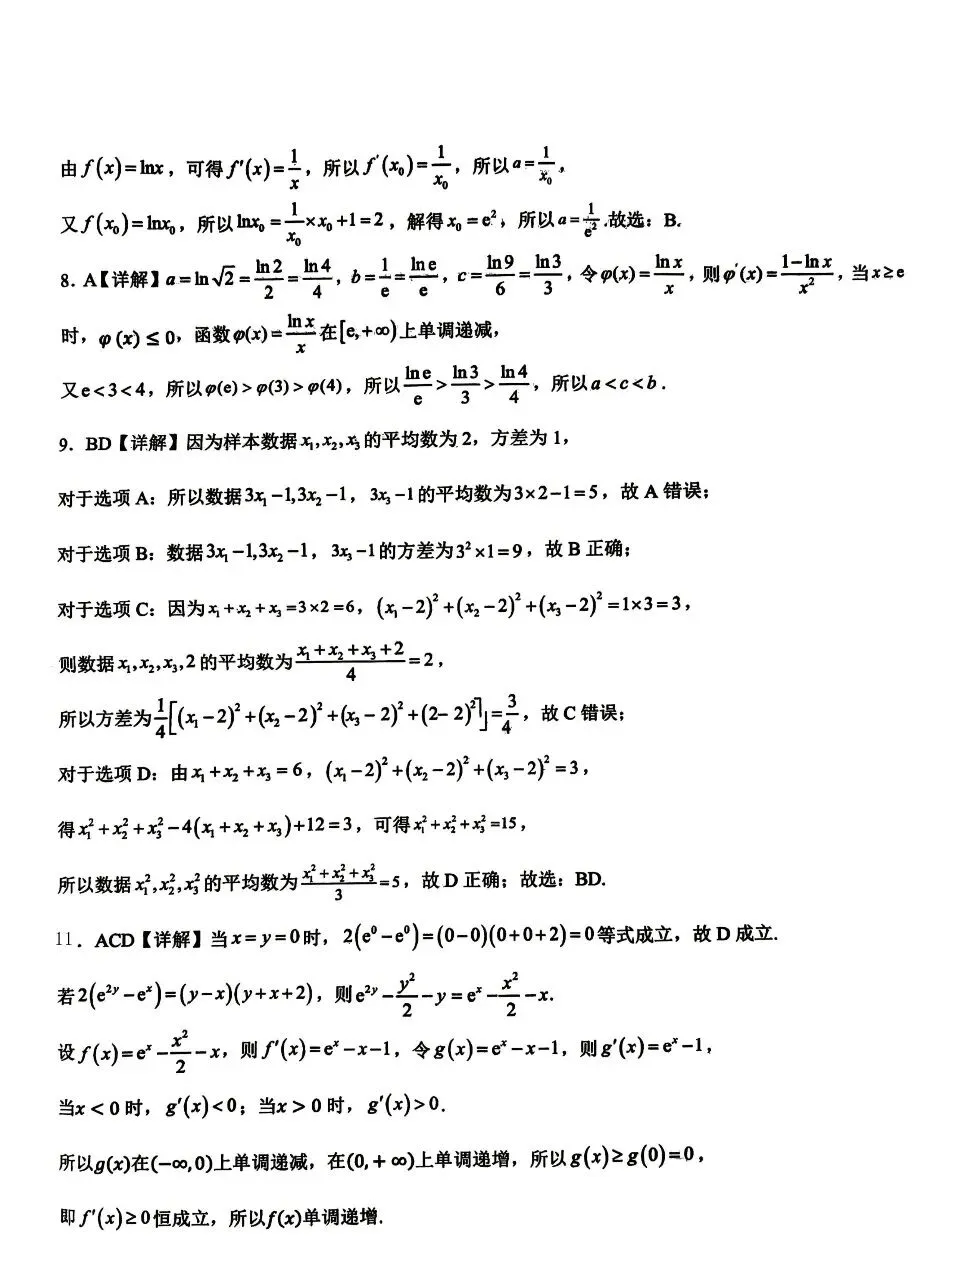 由 f(x)=lnx，可得 f′(x)=1/x，所以 f′(x₀)=1/x₀，所以 a=1/x₀，
又 f(x₀)=lnx₀，所以 lnx₀=1/x₀×x₀+1=2，解得 x₀=e²，所以 a=1/e².故选：B.
8．A【详解】a=ln√2=ln2/2=ln4/4，b=1/e=lne/e，c=ln9/6=ln3/3，令φ(x)=lnx/x，则φ′(x)=(1-lnx)/x²，当 x≥e
时，φ(x)≤0，函数φ(x)=lnx/x 在[e,+∞)上单调递减，
又e<3<4，所以φ(e)>φ(3)>φ(4)，所以 lne/e>ln3/3>ln4/4，所以 a<c<b．
9．BD【详解】因为样本数据 x₁,x₂,x₃的平均数为2，方差为1，
对于选项 A：所以数据3x₁−1,3x₂−1，3x₃−1的平均数为3×2−1=5，故 A 错误；
对于选项 B：数据3x₁−1,3x₂−1，3x₃−1的方差为3²×1=9，故 B 正确；
对于选项 C：因为 x₁+x₂+x₃=3×2=6，(x₁−2)²+(x₂−2)²+(x₃−2)²=1×3=3，
则数据 x₁,x₂,x₃,2 的平均数为(x₁+x₂+x₃+2)/4=2，
所以方差为1/4[(x₁−2)²+(x₂−2)²+(x₃−2)²+(2−2)²]=3/4，故 C 错误；
对于选项 D：由 x₁+x₂+x₃=6，(x₁−2)²+(x₂−2)²+(x₃−2)²=3，
得 x₁²+x₂²+x₃²−4(x₁+x₂+x₃)+12=3，可得 x₁²+x₂²+x₃²=15，
所以数据 x₁²,x₂²,x₃²的平均数为(x₁²+x₂²+x₃²)/3=5，故 D 正确；故选：BD.
11．ACD【详解】当 x=y=0时，2(e⁰−e⁰)=(0−0)(0+0+2)=0等式成立，故 D 成立.
若 2(e²ʸ−eˣ)=(y−x)(y+x+2)，则e²ʸ−y²/2−y=eˣ−x²/2−x.
设 f(x)=eˣ−x²/2−x，则 f′(x)=eˣ−x−1，令 g(x)=eˣ−x−1，则 g′(x)=eˣ−1，
当x<0时，g′(x)<0；当x>0时，g′(x)>0.
所以g(x)在(−∞,0)上单调递减，在(0,+∞)上单调递增，所以 g(x)≥g(0)=0，
即 f′(x)≥0恒成立，所以f(x)单调递增.